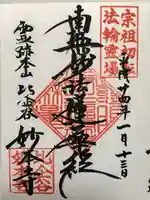 宗祖初転
法輪霊場
平成廿四年一月十三日
南無妙法蓮華経
霊跡本山 比企谷 妙本寺